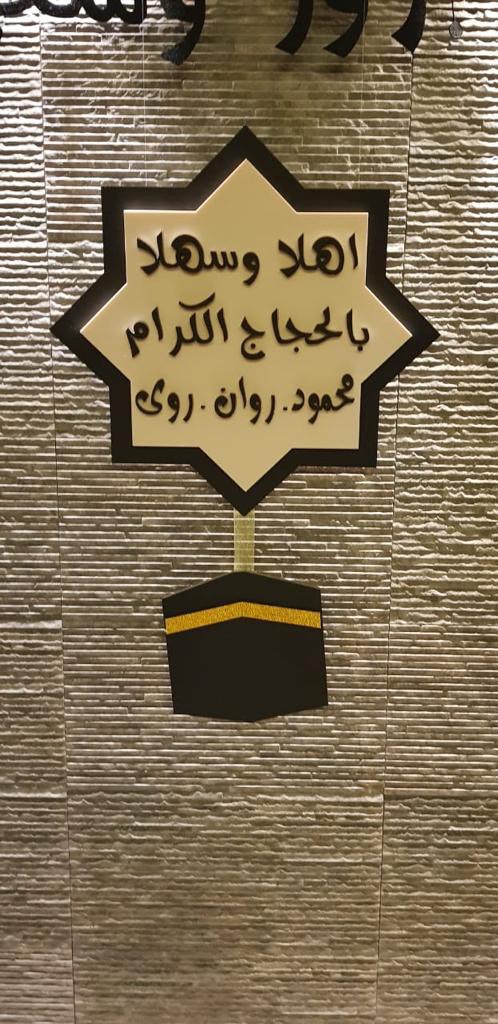 اهلا وسهلا
بالحجاج الكرام
محمود. روان. روى